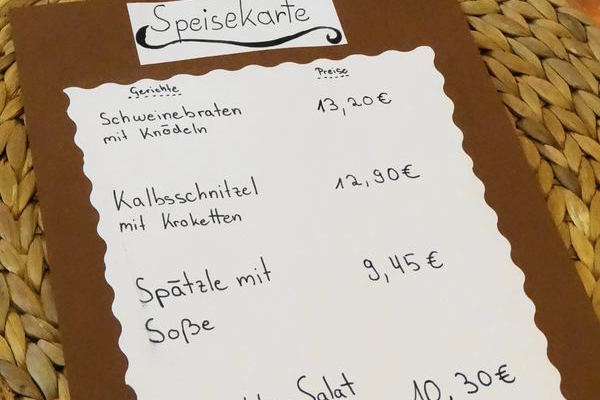 Speisekarte
Gerichte Preise
Schweinebraten 13,20€
mit Knödeln
Kalbsschnitzel 12,90€
mit Kroketten
Spätzle mit 9,45€
Soße
Salat 10,30€